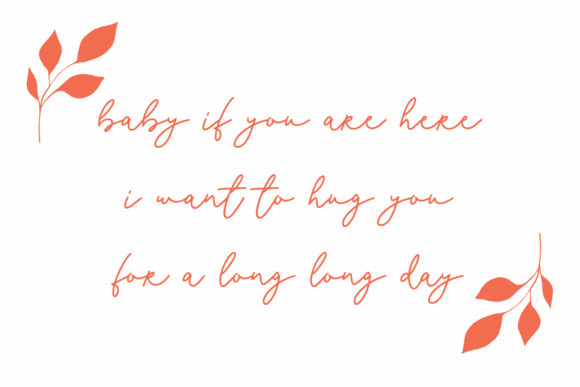 baby if you are here
i want to hug you
for a long long day